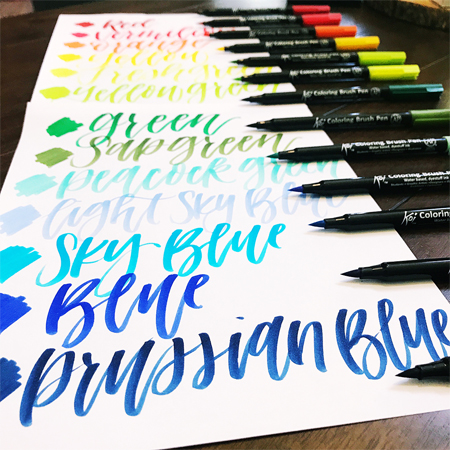 Red
Vermilion
orange
yellow
yellow green
green
Sap green
peacock green
light Sky Blue
Sky Blue
Blue
prussian Blue
Coloring Brush Pen
Coloring Brush Pen
Coloring Brush Pen
Coloring Brush Pen
Koi Coloring Brush Pen
Koi Coloring Brush Pen
Koi Coloring Brush Pen
Water based, dyestuff ink
Koi Coloring Brush Pen
Koi Coloring